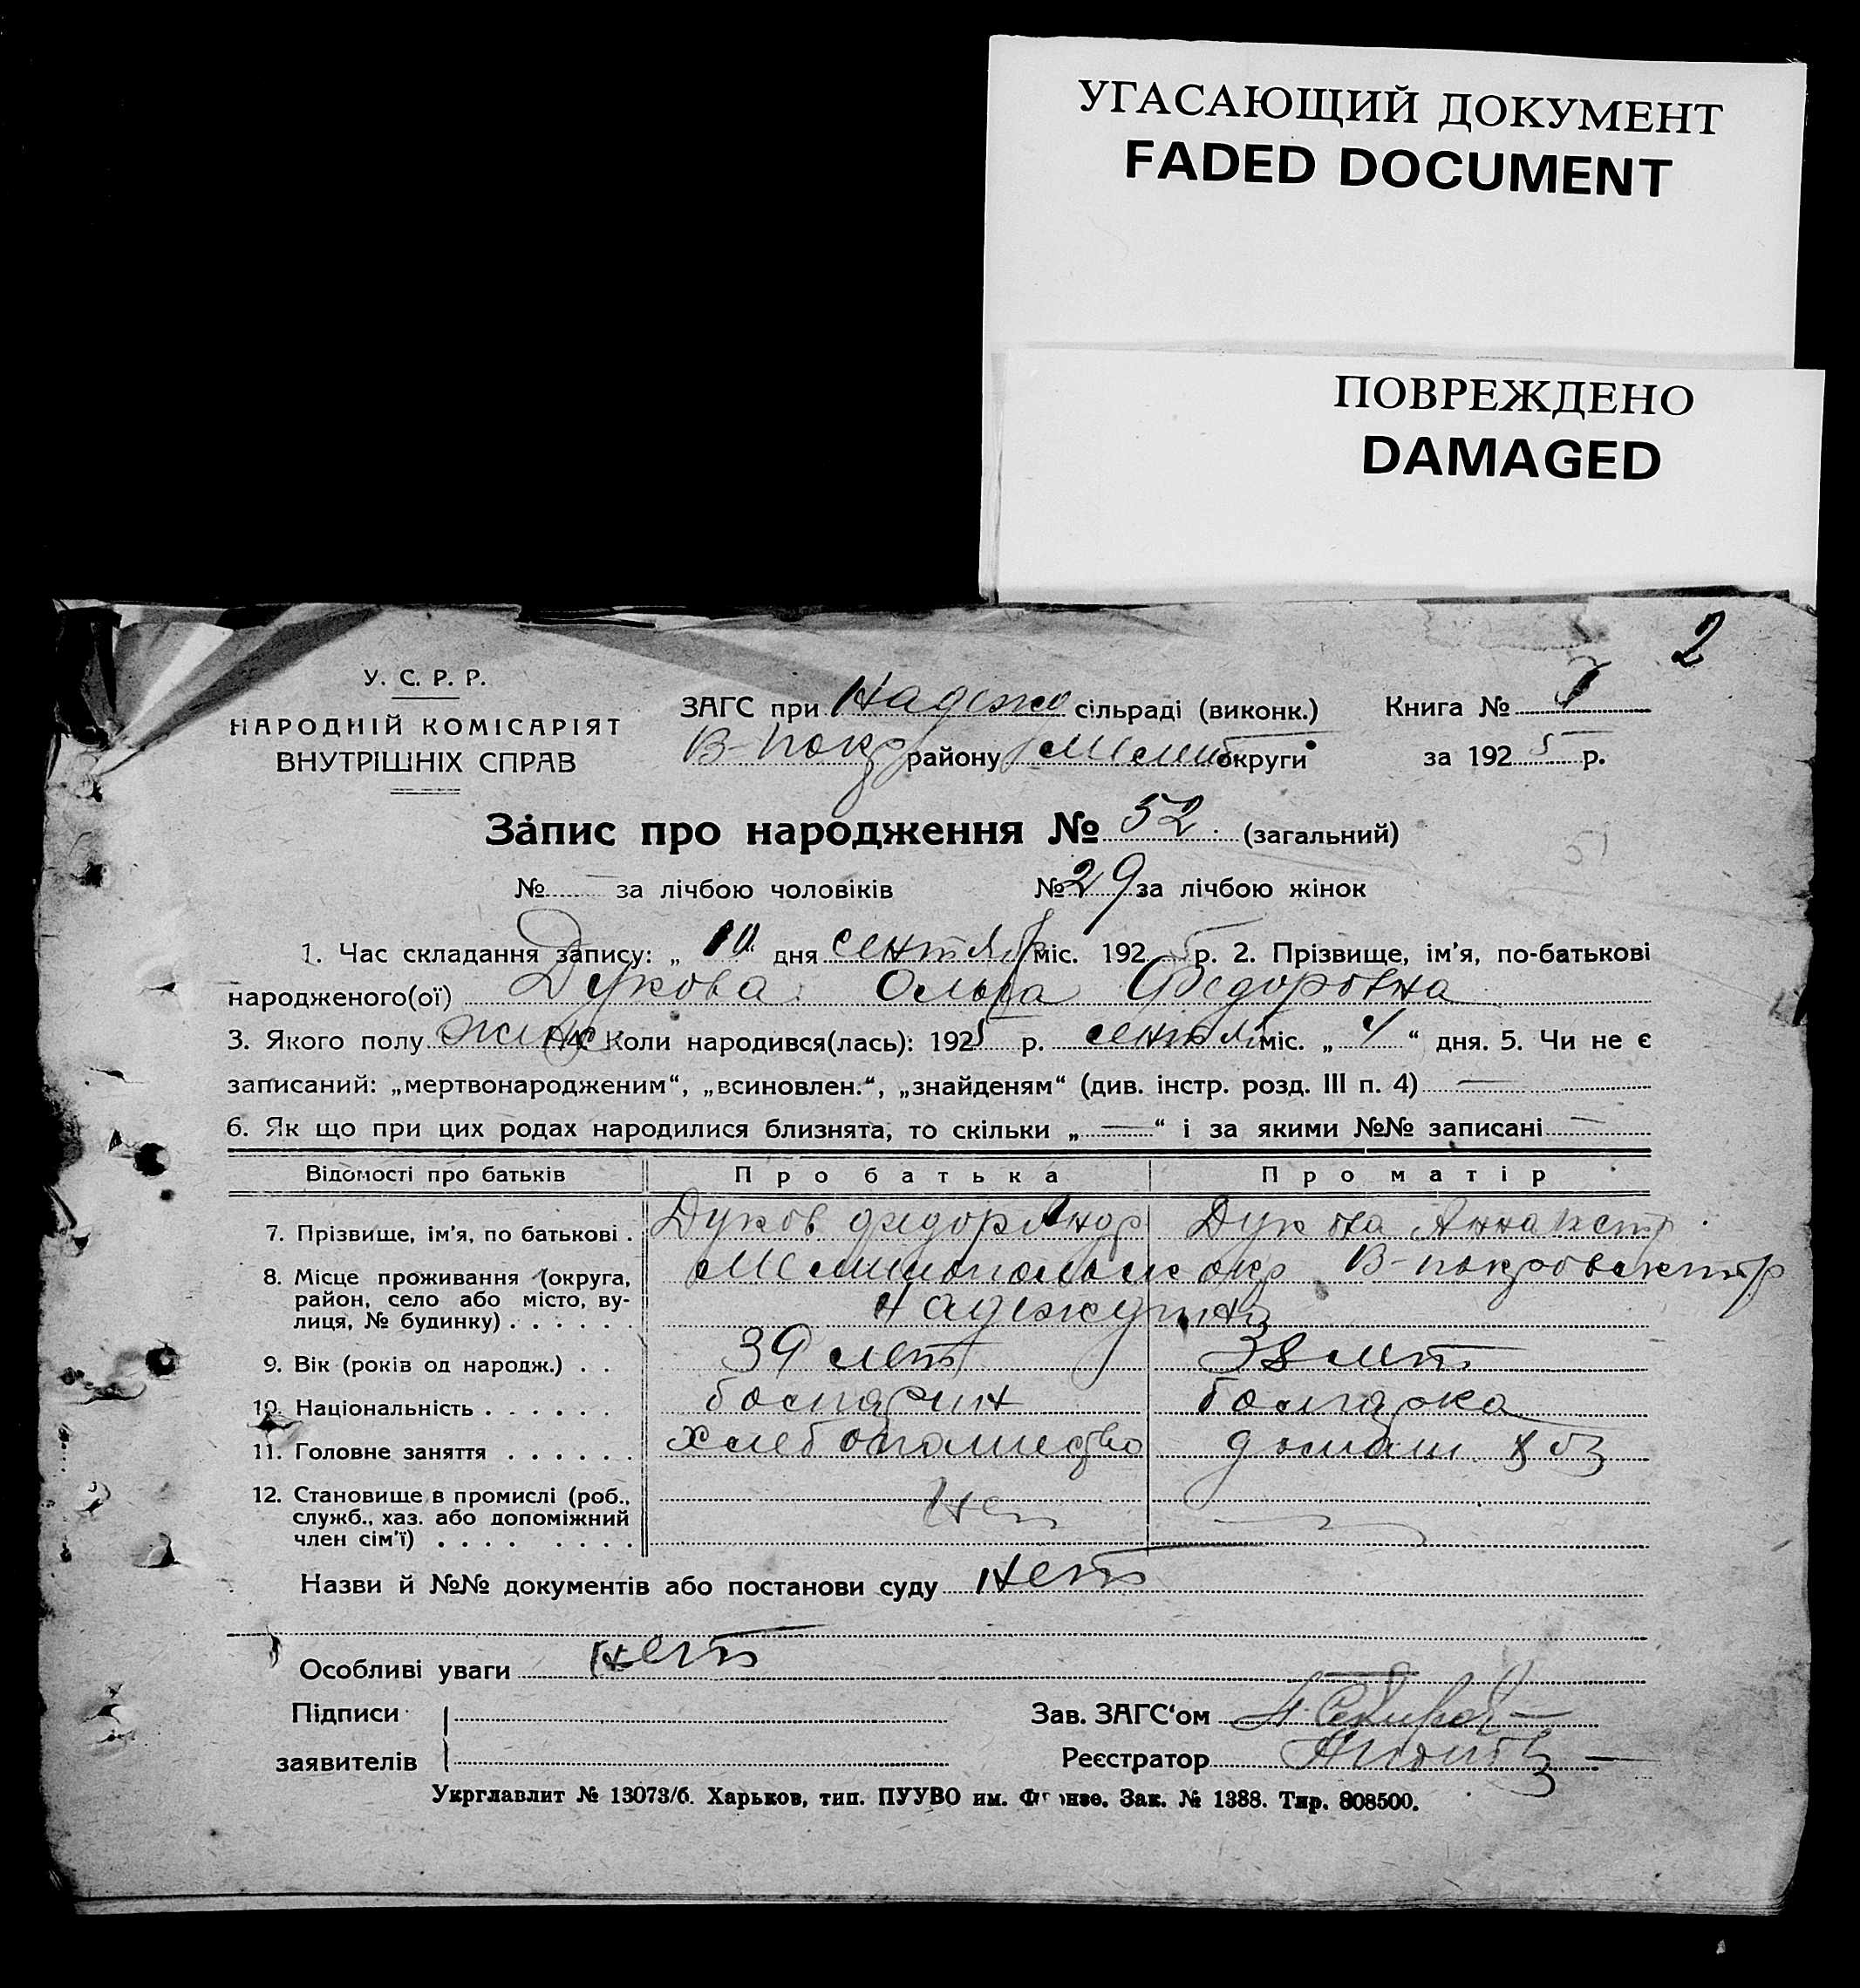 УГАСАЮЩИЙ ДОКУМЕНТ
FADED DOCUMENT
ПОВРЕЖДЕНО
DAMAGED
2
У. С. Р. Р.
НАРОДНІЙ КОМІСАРІЯТ
ВНУТРІШНІХ СПРАВ
ЗАГС при Надежд сільраді (виконк.) Книга №
В-Покр району Мелит округи за 1925 р.
Запис про народження № 52. (загальний)
№ — за лічбою чоловіків № 29 за лічбою жінок
1. Час складання запису: „ 10 " дня сентяб міс. 1925 р. 2. Прізвище, ім'я, по-батькові
народженого(ої) Дукова Ольга Федоровна
3. Якого полу женск 4. Коли народився(лась): 1925 р. сентя міс. „ 4 " дня. 5. Чи не є
записаний: „мертвонародженим", „всиновлен.", „знайденям" (див. інстр. розд. III п. 4) —
6. Як що при цих родах народилися близнята, то скільки „ — " і за якими №№ записані —
Відомості про батьків Про батька Про матір
7. Прізвище, ім'я, по батькові . Дуков Федор Андр Дукова Анна
8. Місце проживання (округа, район, село або місто, вулиця, № будинку) . . . . . Мелитопольск окр В-покровск
39 лет 38 лет
9. Вік (років од народж.) . .
10. Національність . . . . . . болгарин болгарка
11. Головне заняття . . . . . . хлебопашество домаш. хоз
12. Становище в промислі (роб., служб., хаз. або допоміжний член сім'ї) . . . . . . . . Нет —
Назви й №№ документів або постанови суду нет
Особливі уваги нет
Підписи Зав. ЗАГС'ом
заявителів Реєстратор
Укрглавлит № 13073/б. Харьков, тип. ПУУВО им. Фрунзе. Зак. № 1388. Тир. 808500.